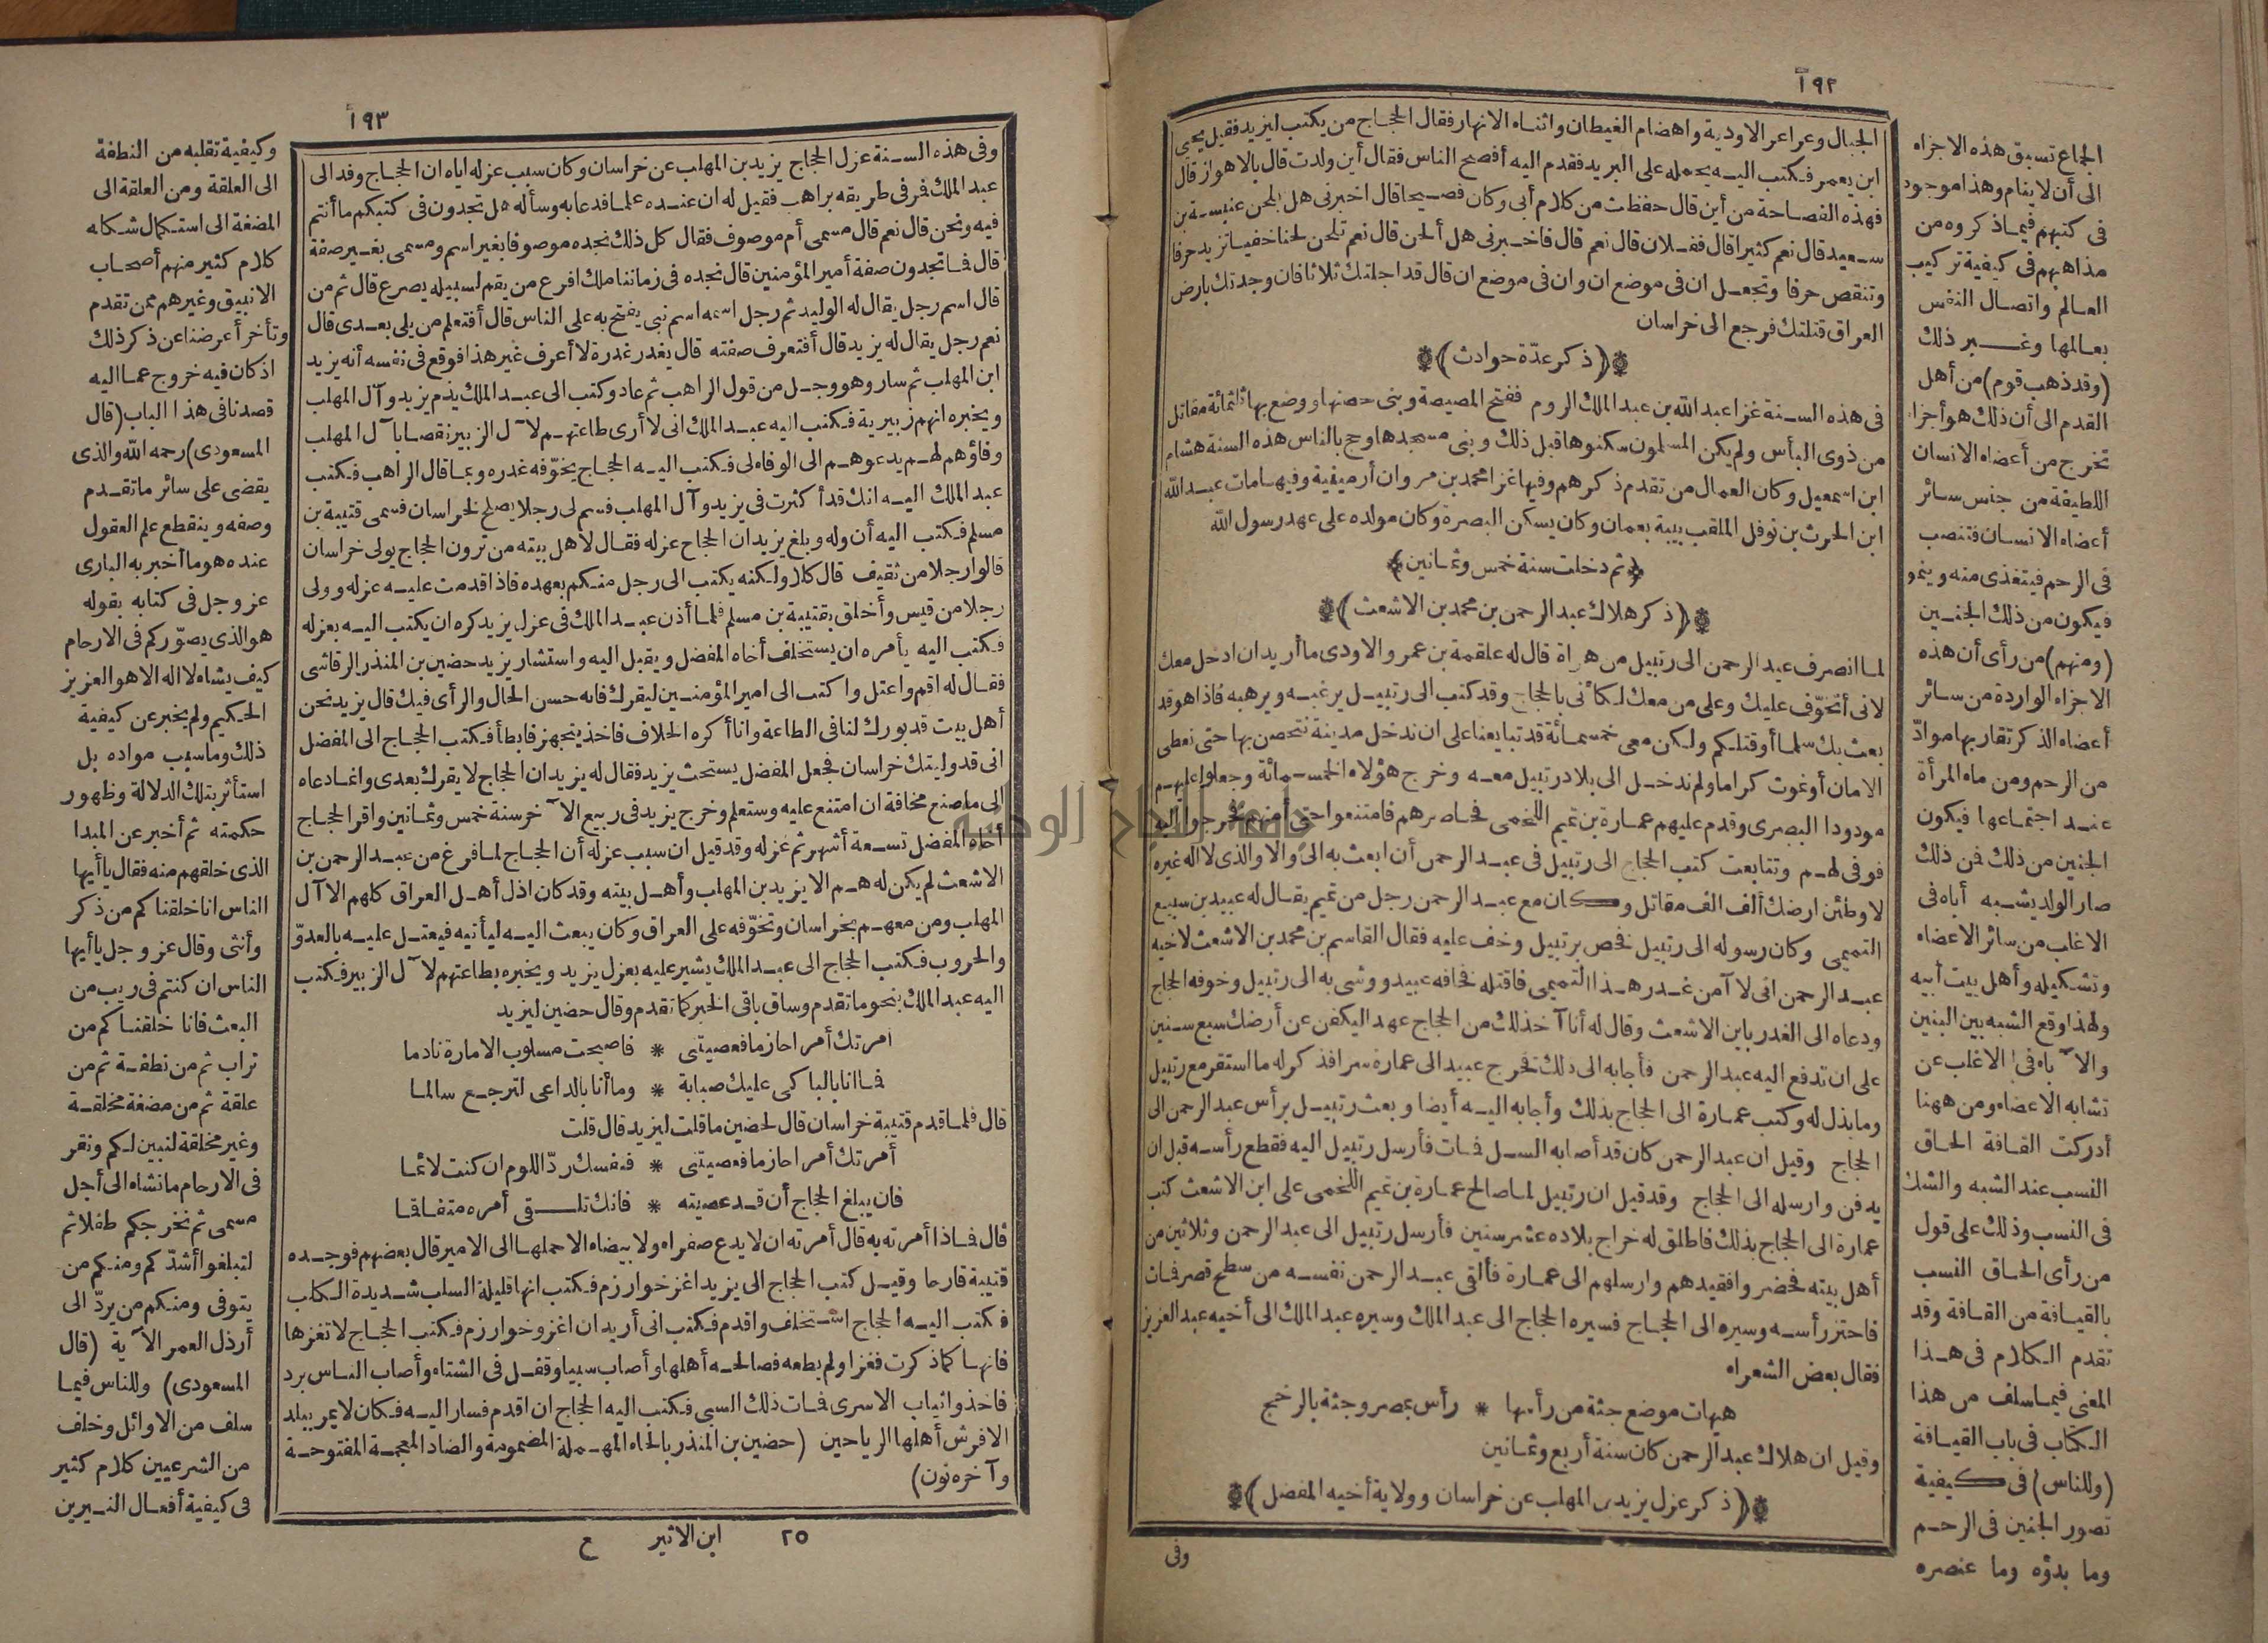 ١٩٢
الجبال وعراعر الاودية واهضام الغيطان واثناء الانهار فقال الحجاج من يكتب ليزيد فقيل يحيى
ابن يعمر فكتب اليه يحمله على البريد فقدم اليه أفصح الناس فقال أين ولدت قال بالاهواز قال
فهذه الفصاحة من أين قال حفظت من كلام أبى وكان فصيحا قال اخبرنى هل يلحن عنبسة بن
سعيد قال نعم كثيرا قال ففلان قال نعم قال فاخبرنى هل ألحن قال نعم تلحن لحنا خفيا تزيد حرفا
وتنقص حرفا وتجعل ان فى موضع ان وان فى موضع ان قال قد اجلتك ثلاثا فان وجدتك بارض
العراق قتلتك فرجع الى خراسان
(ذكر عدّة حوادث)
فى هذه السنة غزا عبد الله بن عبد الملك الروم ففتح المصيصة وبنى حصنها ووضع بها ثلثمائة مقاتل
من ذوى البأس ولم يكن المسلمون سكنوها قبل ذلك وبنى مسجدها وحج بالناس هذه السنة هشام
ابن اسمعيل وكان العمال من تقدم ذكرهم وفيها غزا محمد بن مروان أرمينية وفيها مات عبد الله
ابن الحرث بن نوفل الملقب ببية بعمان وكان يسكن البصرة وكان مولده على عهد رسول الله
(ثم دخلت سنة خمس وثمانين)
(ذكر هلاك عبد الرحمن بن محمد بن الاشعث)
لما انصرف عبد الرحمن الى رتبيل من هراة قال له علقمة بن عمرو الاودى ما أريد ان ادخل معك
لانى أتخوّف عليك وعلى من معك لكأنى بالحجاج وقد كتب الى رتبيل يرغبه ويرهبه فاذا هو قد
بعث بك سلما أو قتلكم ولكن معى خمسمائة قد تبايعنا على ان ندخل مدينة نتحصن بها حتى نعطى
الامان أو نموت كراما ولم ندخل الى بلاد رتبيل معه وخرج هؤلاء الخمسمائة وجعلوا عليهم
مودودا البصرى وقدم عليهم عمارة بن تميم اللخمى فحاصرهم فامتنعوا حتى أمنهم فخرجوا اليه
فوفى لهم وتتابعت كتب الحجاج الى رتبيل فى عبد الرحمن أن ابعث به الىّ والا والذى لا اله غيره
لاوطئن ارضك ألف الف مقاتل وكان مع عبد الرحمن رجل من تميم يقال له عبيد بن سبيع
التميمى وكان رسوله الى رتبيل فخص برتبيل وخف عليه فقال القاسم بن محمد بن الاشعث لاخيه
عبد الرحمن انى لا آمن غدر هذا التميمى فاقتله فخافه عبيد ووشى به الى رتبيل وخوفه الحجاج
ودعاه الى الغدر بابن الاشعث وقال له أنا آخذ لك من الحجاج عهدا ليكفن عن أرضك سبع سنين
على ان تدفع اليه عبد الرحمن فأجابه الى ذلك فخرج عبيد الى عمارة سرا فذكر له ما استقر مع رتبيل
وما بذل له وكتب عمارة الى الحجاج بذلك وأجابه اليه أيضا وبعث رتبيل برأس عبد الرحمن الى
الحجاج وقيل ان عبد الرحمن كان قد أصابه السل فمات فأرسل رتبيل اليه فقطع رأسه قبل ان
يدفن وارسله الى الحجاج وقد قيل ان رتبيل لما صالح عمارة بن تميم اللخمى على ابن الاشعث كتب
عمارة الى الحجاج بذلك فاطلق له خراج بلاده عشر سنين فأرسل رتبيل الى عبد الرحمن وثلاثين من
أهل بيته فحضروا فقيدهم وارسلهم الى عمارة فألقى عبد الرحمن نفسه من سطح قصر فمات
فاحتز رأسه وسيره الى الحجاج فسيره الحجاج الى عبد الملك وسيره عبد الملك الى أخيه عبد العزيز
فقال بعض الشعراء
هيهات موضع جثة من رأسها * رأس بمصر وجثة بالرخج
وقيل ان هلاك عبد الرحمن كان سنة أربع وثمانين
(ذكر عزل يزيد بن المهلب عن خراسان وولاية أخيه المفضل)
وفى
الجماع تسبق هذه الاجزاء
الى أن لا ينام وهذا موجود
فى كتبهم فيما ذكروه من
مذاهبهم فى كيفية تركيب
العالم واتصال النفس
بعالمها وغير ذلك
(وقد ذهب قوم) من أهل
القدم الى أن ذلك هو أجزاء
تخرج من أعضاء الانسان
اللطيفة من جنس سائر
أعضاء الانسان فتنصب
فى الرحم فيتغذى منه وينمو
فيكون من ذلك الجنين
(ومنهم) من رأى أن هذه
الاجزاء الواردة من سائر
أعضاء الذكر تقاربها موادّ
من الرحم ومن ماء المرأة
عند اجتماعها فيكون
الجنين من ذلك فمن ذلك
صار الولد يشبه أباه فى
الاغلب من سائر الاعضاء
وتشكيله وأهل بيت أبيه
ولهذا وقع الشبه بين البنين
والآباء فى الاغلب عن
تشابه الاعضاء ومن ههنا
أدركت القافة الحاق
النسب عند الشبه والشك
فى النسب وذلك على قول
من رأى الحاق النسب
بالقيافة من القافة وقد
تقدم الكلام فى هذا
المعنى فيما سلف من هذا
الكتاب فى باب القيافة
(وللناس) فى كيفية
تصور الجنين فى الرحم
وما بدؤه وما عنصره
١٩٣
وفى هذه السنة عزل الحجاج يزيد بن المهلب عن خراسان وكان سبب عزله اياه ان الحجاج وفد الى
عبد الملك فمر فى طريقه براهب فقيل له ان عنده علما فدعا به وسأله هل تجدون فى كتبكم ما أنتم
فيه ونحن قال نعم قال مسمى أم موصوف فقال كل ذلك نجده موصوفا بغير اسم ومسمى بغير صفة
قال فما تجدون صفة أمير المؤمنين قال نجده فى زماننا ملك افرع من يقم لسبيله يصرع قال ثم من
قال اسم رجل يقال له الوليد ثم رجل اسمه اسم نبى يفتح به على الناس قال أفتعلم من يلى بعدى قال
نعم رجل يقال له يزيد قال أفتعرف صفته قال يغدر غدرة لا أعرف غير هذا فوقع فى نفسه أنه يزيد
ابن المهلب ثم سار وهو وجل من قول الراهب ثم عاد وكتب الى عبد الملك يذم يزيد وآل المهلب
ويخبره انهم زبيرية فكتب اليه عبد الملك انى لا أرى طاعتهم لآل الزبير نقصا بآل المهلب
وفاؤهم لهم يدعوهم الى الوفاء لى فكتب اليه الحجاج يخوّفه غدره وبما قال الراهب فكتب
عبد الملك اليه انك قد أكثرت فى يزيد وآل المهلب فسم لى رجلا يصلح لخراسان فسمى قتيبة بن
مسلم فكتب اليه أن وله وبلغ يزيد ان الحجاج عزله فقال لاهل بيته من ترون الحجاج يولى خراسان
قالوا رجلا من ثقيف قال كلا ولكنه يكتب الى رجل منكم بعهده فاذا قدمت عليه عزله وولى
رجلا من قيس وأخلق بقتيبة بن مسلم فلما أذن عبد الملك فى عزل يزيد كره ان يكتب اليه بعزله
فكتب اليه يأمره ان يستخلف أخاه المفضل ويقبل اليه واستشار يزيد حضين بن المنذر الرقاشى
فقال له اقم واعتل واكتب الى امير المؤمنين ليقرك فانه حسن الحال والرأى فيك قال يزيد نحن
أهل بيت قد بورك لنا فى الطاعة وانا أكره الخلاف فاخذ يتجهز فابطأ فكتب الحجاج الى المفضل
انى قد وليتك خراسان فجعل المفضل يستحث يزيد فقال له يزيد ان الحجاج لا يقرك بعدى وانما دعاه
الى ما صنع مخافة ان امتنع عليه وستعلم وخرج يزيد فى ربيع الآخر سنة خمس وثمانين واقر الحجاج
أخاه المفضل تسعة أشهر ثم عزله وقد قيل ان سبب عزله أن الحجاج لما فرغ من عبد الرحمن بن
الاشعث لم يكن له هم الا يزيد بن المهلب وأهل بيته وقد كان اذل أهل العراق كلهم الا آل
المهلب ومن معهم بخراسان وتخوّفه على العراق وكان يبعث اليه ليأتيه فيعتل عليه بالعدوّ
والحروب فكتب الحجاج الى عبد الملك يشير عليه بعزل يزيد ويخبره بطاعتهم لآل الزبير فكتب
اليه عبد الملك بنحو ما تقدم وساق باقى الخبر كما تقدم وقال حضين ليزيد
أمرتك أمرا حازما فعصيتنى * فاصبحت مسلوب الامارة نادما
فما انا بالباكى عليك صبابة * وما أنا بالداعى لترجع سالما
قال فلما قدم قتيبة خراسان قال لحضين ما قلت ليزيد قال قلت
أمرتك أمرا حازما فعصيتنى * فنفسك ردّ اللوم ان كنت لائما
فان يبلغ الحجاج أن قد عصيته * فانك تلقى أمره متفاقما
قال فماذا أمرته به قال أمرته ان لا يدع صفراء ولا بيضاء الا حملها الى الامير قال بعضهم فوجده
قتيبة قارحا وقيل كتب الحجاج الى يزيد اغز خوارزم فكتب انها قليلة السلب شديدة الكلب
فكتب اليه الحجاج استخلف واقدم فكتب انى أريد ان اغزو خوارزم فكتب الحجاج لا تغزها
فانها كما ذكرت فغزا ولم يطعه فصالحه أهلها وأصاب سبيا وقفل فى الشتاء وأصاب الناس برد
فاخذوا ثياب الاسرى فمات ذلك السبى فكتب اليه الحجاج ان اقدم فسار اليه فكان لا يمر ببلد
الا فرش أهلها الرياحين (حضين بن المنذر بالحاء المهملة المضمومة والضاد المعجمة المفتوحة
وآخره نون)
٢٥ ابن الاثير ع
وكيفية تقلبه من النطفة
الى العلقة ومن العلقة الى
المضغة الى استكمال شكله
كلام كثير منهم أصحاب
الانبيق وغيرهم ممن تقدم
وتأخر أعرضنا عن ذكر ذلك
اذ كان فيه خروج عما اليه
قصدنا فى هذا الباب (قال
المسعودى) رحمه الله والذى
يقضى على سائر ما تقدم
وصفه وينقطع علم العقول
عنده هو ما أخبر به البارى
عز وجل فى كتابه بقوله
هو الذى يصوّركم فى الارحام
كيف يشاء لا اله الا هو العزيز
الحكيم ولم يخبر عن كيفية
ذلك وما سبب مواده بل
استأثر بتلك الدلالة وظهور
حكمته ثم أخبر عن المبدا
الذى خلقهم منه فقال يا أيها
الناس انا خلقناكم من ذكر
وأنثى وقال عز وجل يا أيها
الناس ان كنتم فى ريب من
البعث فانا خلقناكم من
تراب ثم من نطفة ثم من
علقة ثم من مضغة مخلقة
وغير مخلقة لنبين لكم ونقر
فى الارحام ما نشاء الى أجل
مسمى ثم نخرجكم طفلا ثم
لتبلغوا أشدّكم ومنكم من
يتوفى ومنكم من يردّ الى
أرذل العمر الآية (قال
المسعودى) وللناس فيما
سلف من الاوائل وخلف
من الشرعيين كلام كثير
فى كيفية أفعال النيرين